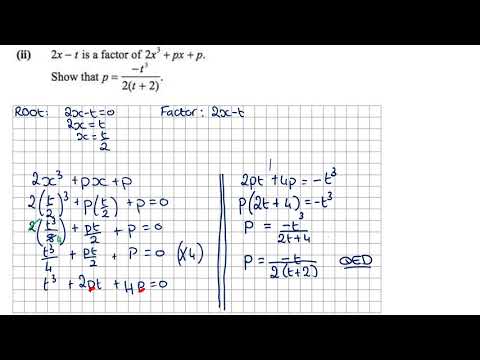 (ii) 2x – t is a factor of 2x³ + px + p.
Show that p = −t³/2(t + 2).
Root: 2x-t=0
2x=t
x=t/2
Factor: 2x-t
2x³ + px + p
2(t/2)³ + p(t/2) + p = 0
2(t³/8 4) + pt/2 + p = 0
t³/4 + pt/2 + p = 0 (x4)
t³ + 2pt + 4p = 0
2pt + 4p = -t³
p(2t + 4) = -t³
p = -t³/2t+4
p = -t/2(t+2) QED